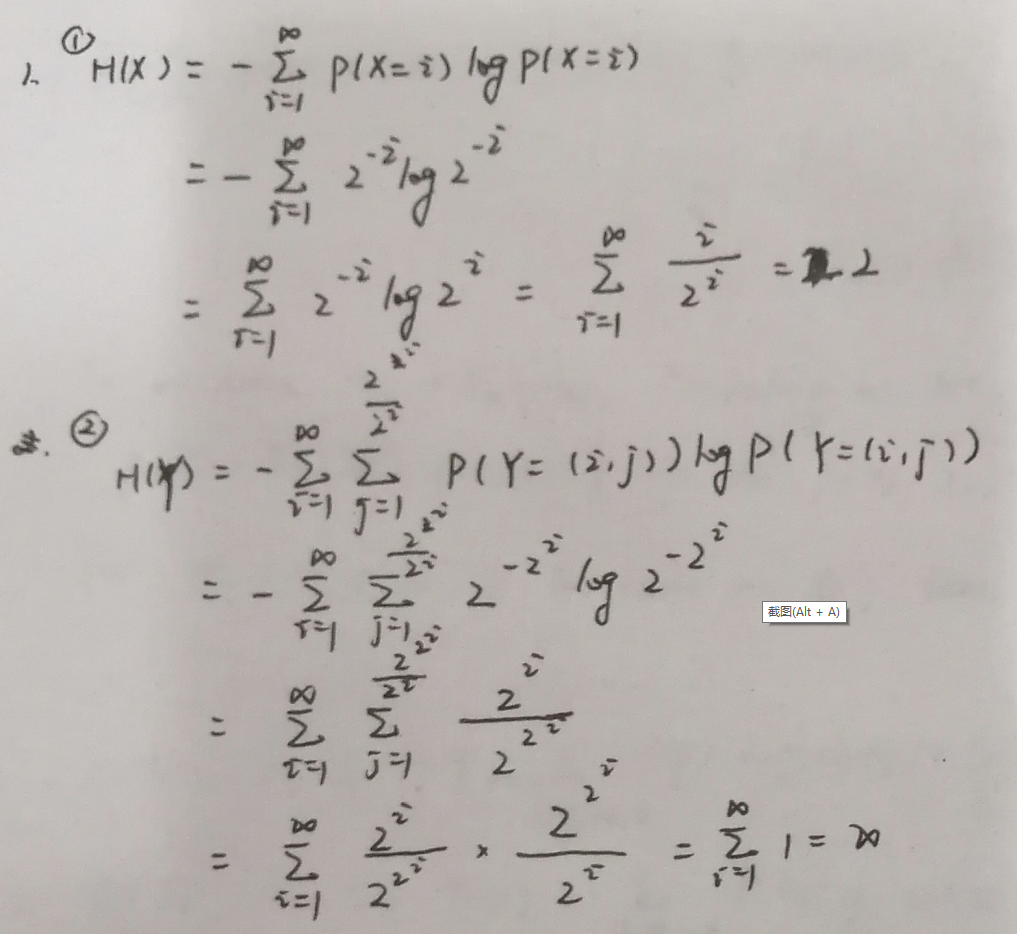 1. ① H(X) = - ∑_{i=1}^{∞} P(X=i) log P(X=i)
= - ∑_{i=1}^{∞} 2^{-i} log 2^{-i}
= ∑_{i=1}^{∞} 2^{-i} log 2^{i} = ∑_{i=1}^{∞} i/2^{i} = 2
② H(Y) = - ∑_{i=1}^{∞} ∑_{j=1} P(Y=(i,j)) log P(Y=(i,j))
= - ∑_{i=1}^{∞} ∑_{j=1}^{2^{2^{i}}/2^{i}} 2^{-2^{i}} log 2^{-2^{i}}
截图(Alt + A)
= ∑_{i=1}^{∞} ∑_{j=1}^{2^{2^{i}}/2^{i}} 2^{i}/2^{2^{i}}
= ∑_{i=1}^{∞} 2^{i}/2^{2^{i}} × 2^{2^{i}}/2^{i} = ∑_{i=1}^{∞} 1 = ∞